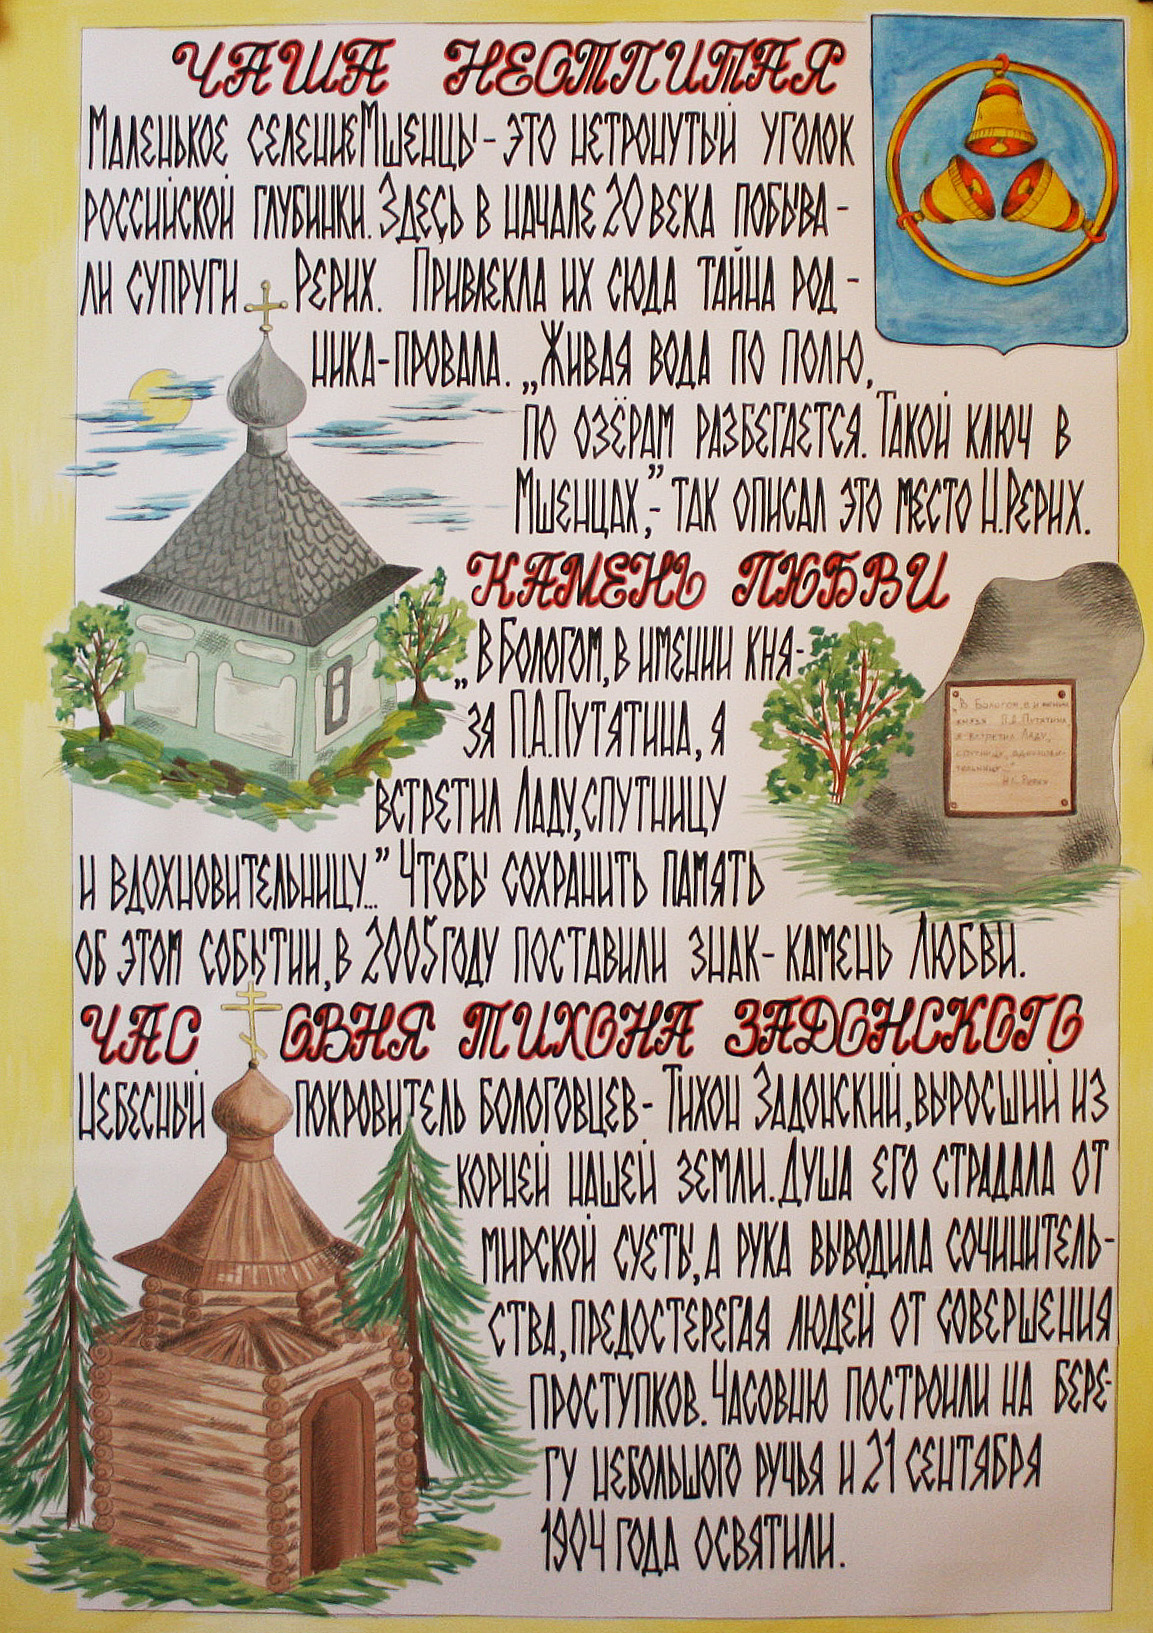 ЧАША НЕОТПИТАЯ
МАЛЕНЬКОЕ СЕЛЕНИЕ МШЕНЦЫ - ЭТО НЕТРОНУТЫЙ УГОЛОК
РОССИЙСКОЙ ГЛУБИНКИ. ЗДЕСЬ В НАЧАЛЕ 20 ВЕКА ПОБЫВА -
ЛИ СУПРУГИ РЕРИХ. ПРИВЛЕКЛА ИХ СЮДА ТАЙНА РОД -
НИКА-ПРОВАЛА. „ЖИВАЯ ВОДА ПО ПОЛЮ,
ПО ОЗЁРАМ РАЗБЕГАЕТСЯ. ТАКОЙ КЛЮЧ В
МШЕНЦАХ,”- ТАК ОПИСАЛ ЭТО МЕСТО Н. РЕРИХ.
КАМЕНЬ ЛЮБВИ
„В БОЛОГОМ, В ИМЕНИИ КНЯ-
ЗЯ П.А.ПУТЯТИНА, Я
ВСТРЕТИЛ ЛАДУ, СПУТНИЦУ
И ВДОХНОВИТЕЛЬНИЦУ...” ЧТОБЫ СОХРАНИТЬ ПАМЯТЬ
ОБ ЭТОМ СОБЫТИИ, В 2005 ГОДУ ПОСТАВИЛИ ЗНАК - КАМЕНЬ ЛЮБВИ.
„В Бологом, в имении
князя П.А.Путятина
я встретил Ладу,
спутницу, вдохнови-
тельницу..."
Н.К. Рерих
ЧАСОВНЯ ТИХОНА ЗАДОНСКОГО
НЕБЕСНЫЙ ПОКРОВИТЕЛЬ БОЛОГОВЦЕВ - ТИХОН ЗАДОНСКИЙ, ВЫРОСШИЙ ИЗ
КОРНЕЙ НАШЕЙ ЗЕМЛИ. ДУША ЕГО СТРАДАЛА ОТ
МИРСКОЙ СУЕТЫ, А РУКА ВЫВОДИЛА СОЧИНИТЕЛЬ-
СТВА, ПРЕДОСТЕРЕГАЯ ЛЮДЕЙ ОТ СОВЕРШЕНИЯ
ПРОСТУПКОВ. ЧАСОВНЮ ПОСТРОИЛИ НА БЕРЕ-
ГУ НЕБОЛЬШОГО РУЧЬЯ И 21 СЕНТЯБРЯ
1904 ГОДА ОСВЯТИЛИ.